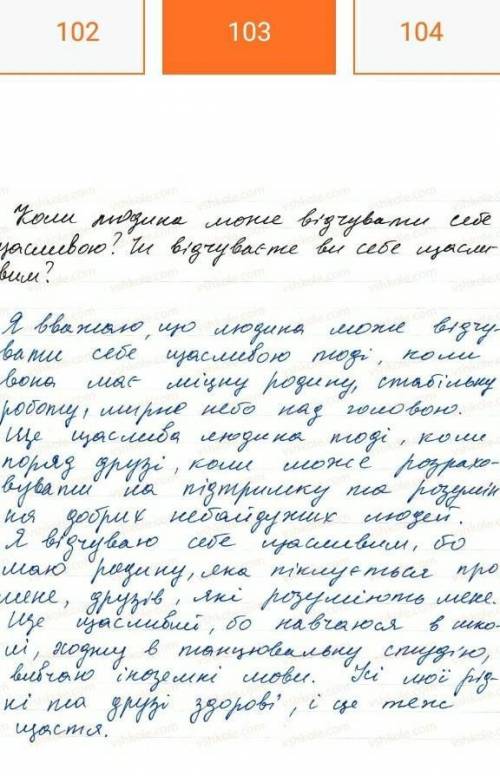 102 103 104
Коли людина може відчувати себе
щасливою? Чи відчуваєте ви себе щасли-
вим?
Я вважаю, що людина може відчу-
вати себе щасливою тоді, коли
вона має міцну родину, стабільну
роботу, мирне небо над головою.
Ще щаслива людина тоді, коли
поряд друзі, коли може розрахо-
вувати на підтримку та розумін
ня добрих небайдужих людей.
Я відчуваю себе щасливим, бо
маю родину, яка піклується про
мене, друзів, які розуміють мене.
Ще щасливий, бо навчаюся в шко-
лі, ходжу в танцювальну студію,
вивчаю іноземні мови. Усі мої рід-
ні та друзі здорові, і це теж
щастя.